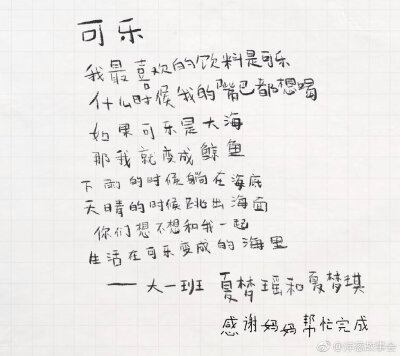 可乐
我最喜欢的饮料是可乐
什么时候我的嘴巴都想喝
如果可乐是大海
那我就变成鲸鱼
下雨的时候躺在海底
天晴的时候跳出海面
你们想不想和我一起
生活在可乐变成的海里
——大一班 夏梦瑶和夏梦琪
感谢妈妈帮忙完成